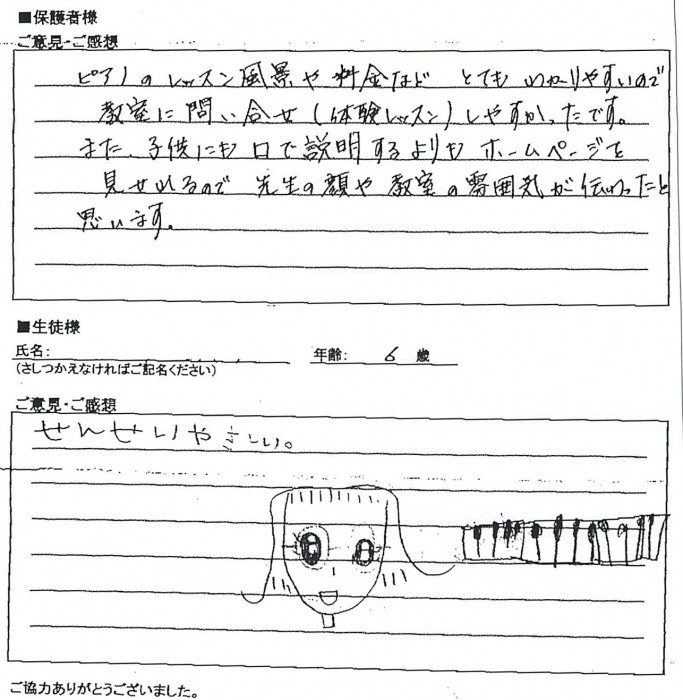 ■保護者様
ご意見・ご感想
ピアノのレッスン風景や料金など とてもわかりやすいので
教室に問い合せ(体験レッスン)しやすかったです。
また、子供にも口で説明するよりもホームページを
見せれるので先生の顔や教室の雰囲気が伝わったと
思います。
■生徒様
氏名:
年齢: 6 歳
(さしつかえなければご記名ください)
ご意見・ご感想
せんせいやさしい。
ご協力ありがとうございました。